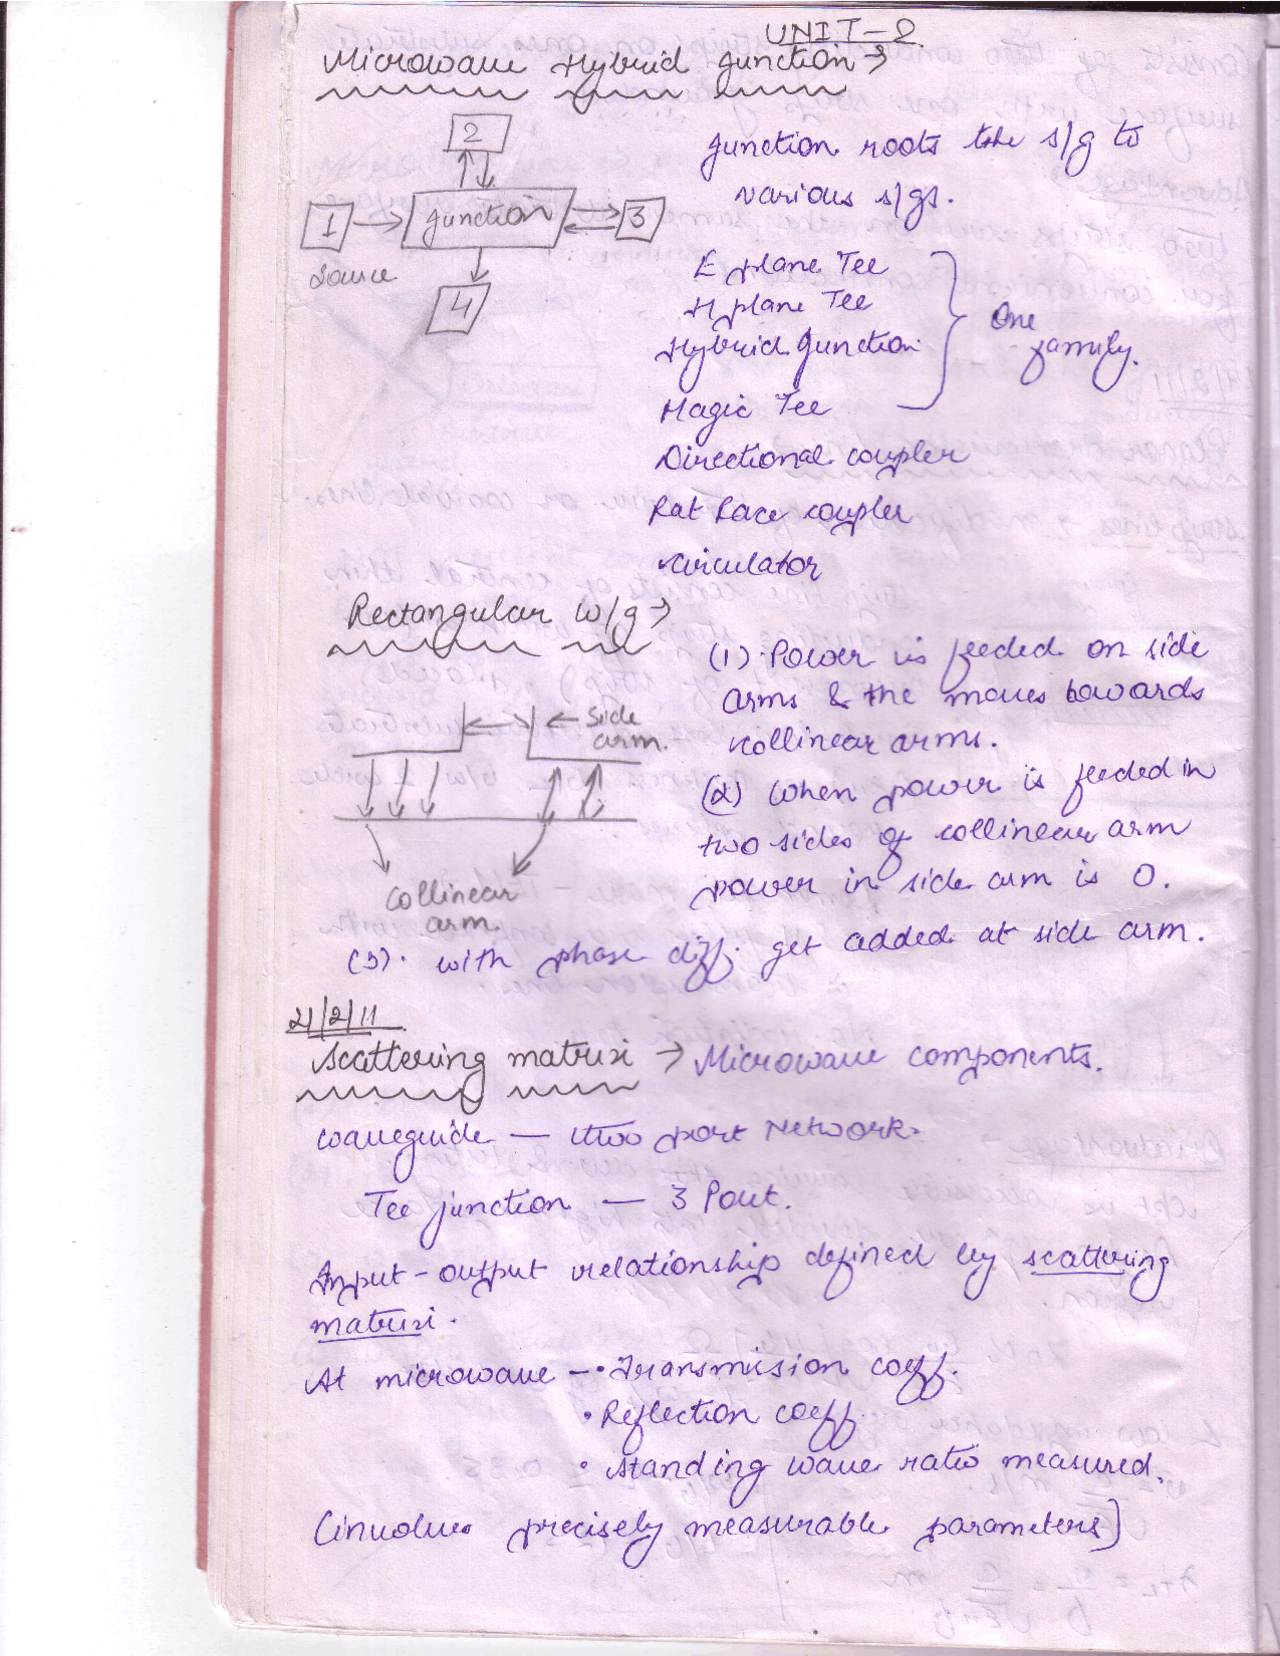 UNIT-2
Microwave Hybrid junction →
2
1
junction
3
source
4
junction roots the s/g to
various s/gs.
E plane Tee
H plane Tee
Hybrid junction
Magic Tee
One
family.
Directional coupler
Rat Race coupler
circulator
Rectangular w/g →
← side
arm.
collinear
arm.
(1) Power is feeded on side
arms & the moves towards
collinear arms.
(2) When power is feeded in
two sides of collinear arm
power in side arm is 0.
(3). with phase diff. get added at side arm.
21/2/11
Scattering matrix → Microwave components.
waveguide — two port Network.
Tee junction — 3 Port.
Input-output relationship defined by scattering
matrix.
At microwave – • Transmission coeff.
• Reflection coeff.
• standing wave ratio measured.
(involves precisely measurable parameters)